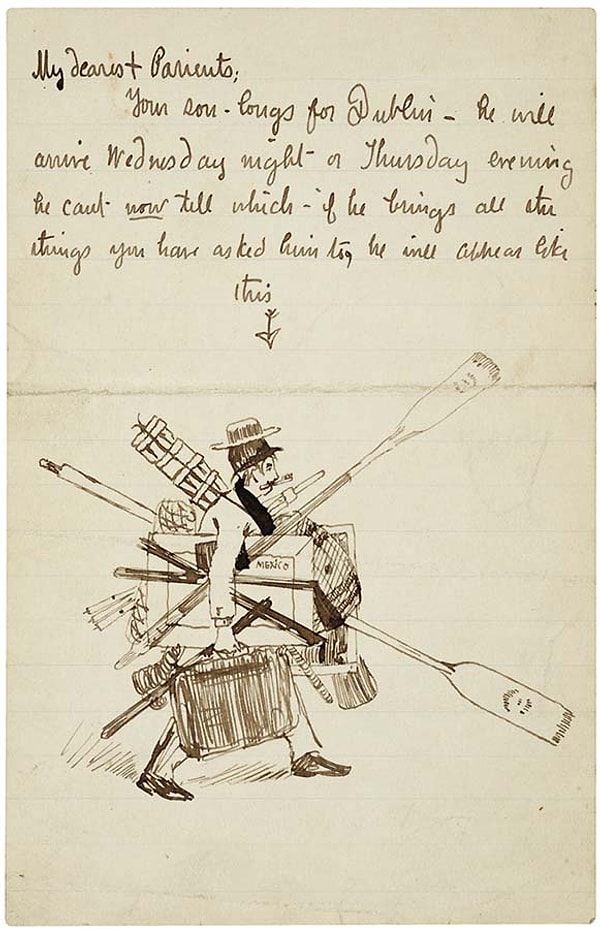 My dearest Parients,
Your son - longs for Dublin - he will
arrive Wednesday night or Thursday evening
he cant now tell which - if he brings all the
things you have asked him to, he will appear like
this
MEXICO